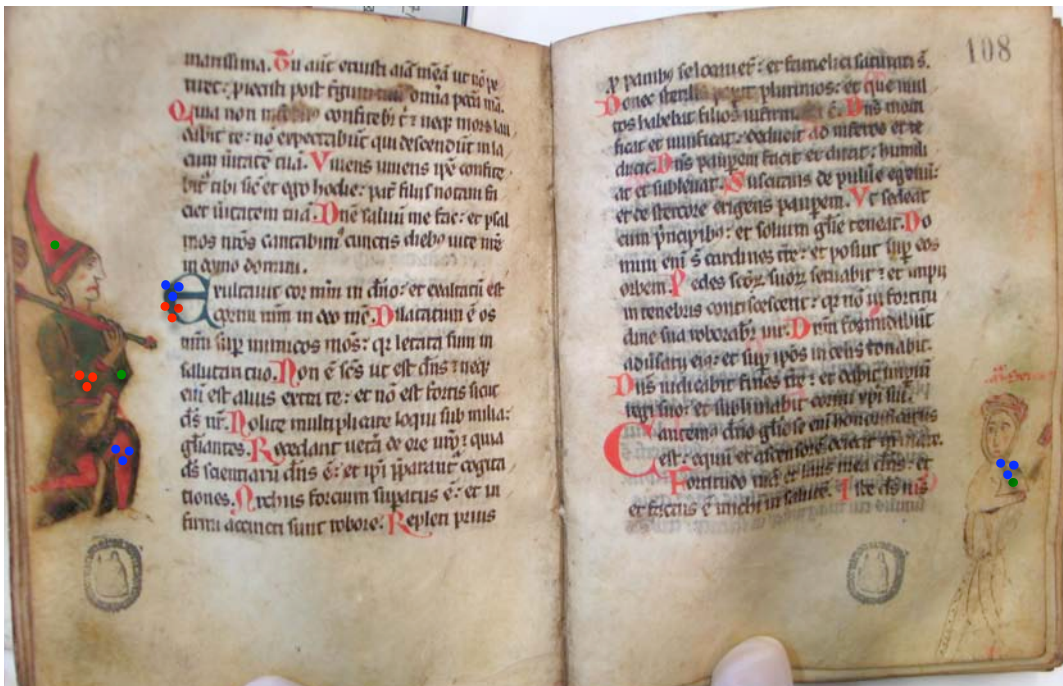 marissima. Tu aut eruisti aiā meā ut nō pe
riret: proiecisti post tergum tuū omnia pccā mā.
Quia non infernꝰ confitebit̄ t̄: neqꝫ mors lau
dabit te: nō expectabūt qui descendūt in la
cum ūitatē tuā. Vivens vivens ipē confite
bit̄ tibi sic̄ et ego hodie: pat̄ filiis notam fa
ciet ūitatem tuā. Dn̄e saluū me fac: et psal
mos nr̄os cantabimꝰ cunctis diebꝫ uite nr̄e
in domo domini.
Exultauit cor mm̄ in dn̄o: et exaltatū est
cornu mm̄ in deo mō. Dilatatum ē os
mm̄ sup inimicos mōs: qr letata sum in
salutari tuo. Non ē sc̄s ut est dn̄s: neqꝫ
eni est alius extra te: et nō est fortis sicut
ds̄ nr̄. Nolite multiplicare loqui sublimia:
gliantes. Recedant uetā de ore ur̄o: quia
ds̄ scientiarū dn̄s ē: et ipi ꝑparant̄ cogita
tiones. Arcus forcium suꝑatus ē: et in
firmi accincti sunt robore. Repleti prius
108
ꝓ panibꝫ se locauer̄: et famelici saturati s̄.
Donec sterilis peperit plurimos: et que mul
tos habebat filios infirmata ē. Dn̄s mori
ficat et uiuificat: deducit ad inferos et re
ducit. Dn̄s pauꝑem facit et ditat: humili
at et subleuat. Suscitans de puluē egenū:
et de stercore erigens pauꝑem. Vt sedeat
cum pncipibꝫ: et solium glie teneat. Do
mini eni s̄ cardines tr̄e: et posuit suꝑ eos
orbem. Pedes scōꝝ suoꝝ seruabit: et impii
in tenebris conticescent: qr nō in fortitu
dine sua roborabit̄ uir. Dnm̄ formidabūt
adūsarii eiꝰ: et suꝑ ipos in celis tonabit.
Dn̄s iudicabit fines tr̄e: et dabit imꝑiū
regi suo: et sublimabit cornu xp̄i sui.
Cantemꝰ dn̄o gliose eni honorificatus
est: equū et ascensorē deiecit in mare.
Fortitudo mā et laus mea dn̄s: et
factus ē michi in salutē. Iste ds̄ mꝰ